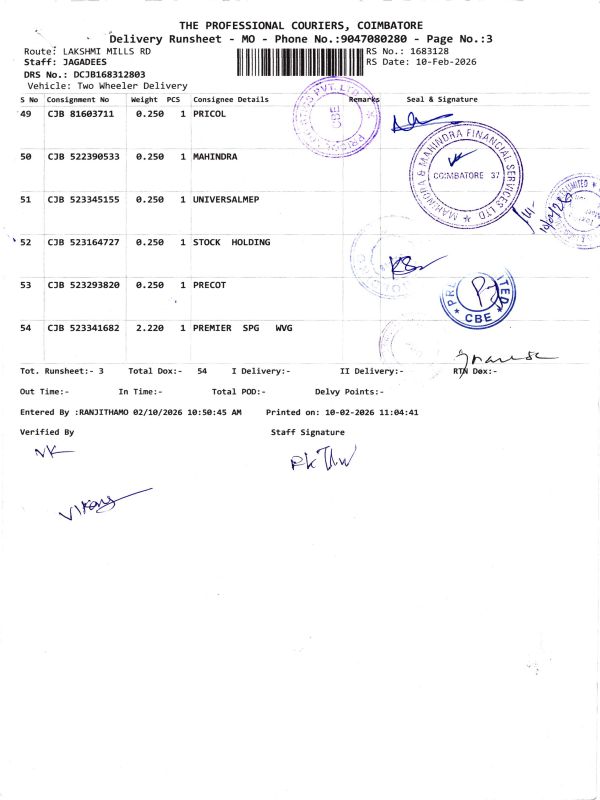 THE PROFESSIONAL COURIERS, COIMBATORE
Delivery Runsheet - MO - Phone No.:9047080280 - Page No.:3
Route: LAKSHMI MILLS RD
RS No.: 1683128
Staff: JAGADEES
RS Date: 10-Feb-2026
DRS No.: DCJB168312803
Vehicle: Two Wheeler Delivery
S No Consignment No Weight PCS Consignee Details Remarks Seal & Signature
49 CJB 81603711 0.250 1 PRICOL
50 CJB 522390533 0.250 1 MAHINDRA
MAHINDRA & MAHINDRA FINANCIAL SERVICES LTD
COIMBATORE 37
51 CJB 522345155 0.250 1 UNIVERSALMEP
52 CJB 523164727 0.250 1 STOCK HOLDING
53 CJB 523293820 0.250 1 PRECOT
CBE
54 CJB 523341682 2.220 1 PREMIER SPG WVG
Tot. Runsheet:- 3 Total Dox:- 54 I Delivery:- II Delivery:- RTN Dox:-
Out Time:- In Time:- Total POD:- Delvy Points:-
Entered By :RANJITHAMO 02/10/2026 10:50:45 AM Printed on: 10-02-2026 11:04:41
Verified By Staff Signature
VK